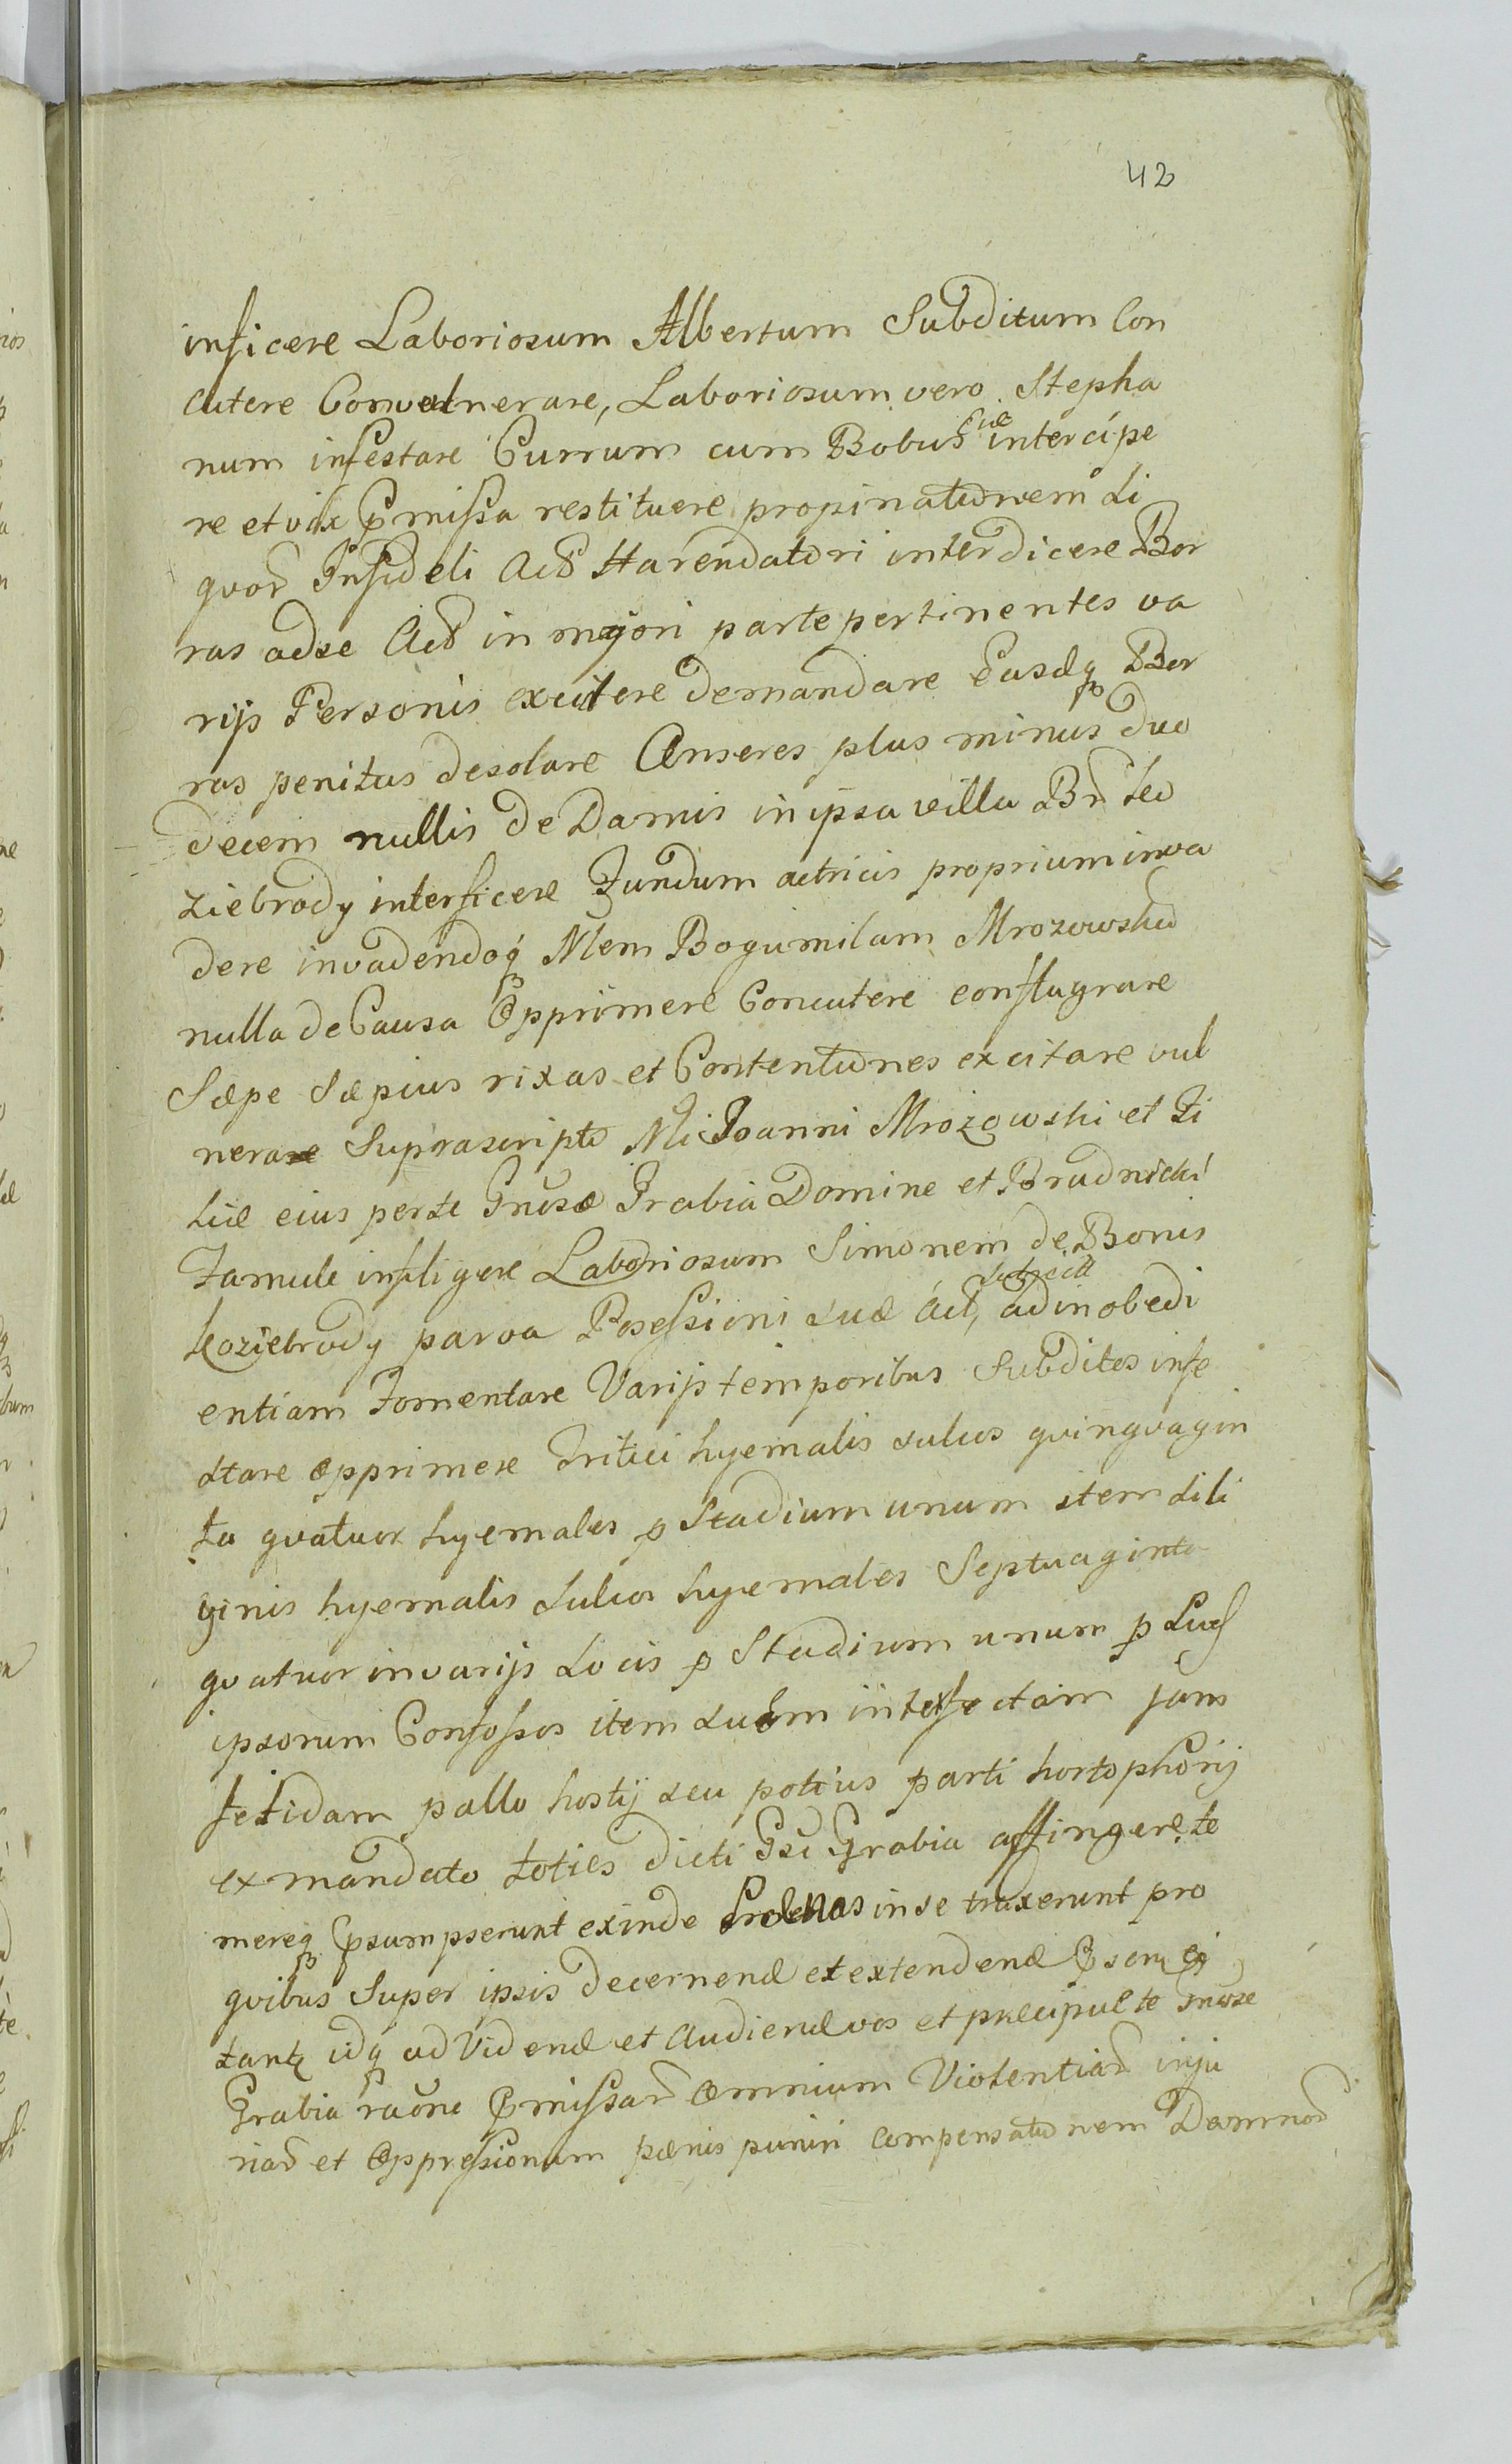 42
inficere Laboriosum Albertum Subditum Con
cutere Convulnerare, Laboriosum vero Stepha
num infestare Currum cum Bobus suis intercipe
re et vix pmissa restituere propinationem Li
quor Infideli Act Harendatori interdicere Bor
ras ad se Act in majori parte pertinentes va
rijs Personis excutere demandare Easdq Bor
ras penitus desolare Anseres plus minus duo
decem nullis de Damis in ipsa villa Br Ko
ziebrody interficere Fundum actricis proprium inva
dere invadendoq Nlem Bogumilam Mrozowska
nulla de Causa Opprimere Concutere conflagrare
Sæpe Sæpius rixas et Contentiones excitare vul
nerare Suprascripto Nli Joanni Mrozowski et Fi
liæ eius per te Gnose Grabia Domine et Brudnicki
Famule infligere Laboriosum Simonem de Bonis
Koziebrody parva Posessioni suæ Act, subject ad inobedi
entiam Fomentare Varijs temporibus Subditos infe
stare opprimere Tritici hyemalis sulcos quinquagin
ta quatuor hyemales p Stadium unum item Sili
ginis hyemalis Sulcos hyemales Septuaginta
quatuor in varijs Locis p Stadium unum p Sues
ipsorum Confossos item suem interfectam jam
fetidam pallo hostij seu potius parti hortophorij
ex mandato toties dicti Gsi Grabia affingere te
mereq psumpserunt exinde Poenas in se traxerunt pro
quibus Super ipsis decernend et extendend
tantq idq ad Vidend et Audiend vos et præcipue te Gnose
Grabia raone pmissar omnium Violentiar inju
riar et Oppressionum pœnis puniri compensationem Damnor